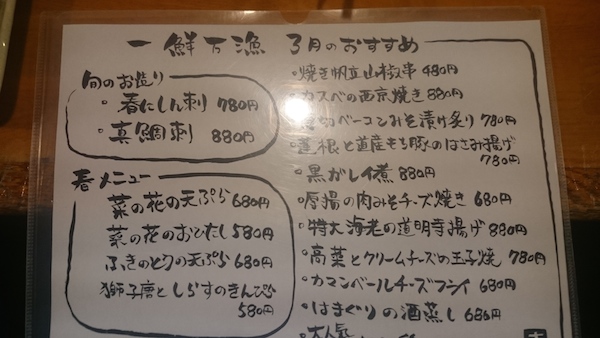 一鮮万漁 3月のおすすめ
旬のお造り
・春にしん刺 780円
・真鯛刺 880円
春メニュー
菜の花の天ぷら 680円
菜の花のおひたし 580円
ふきのとうの天ぷら 680円
獅子唐としらすのきんぴら
580円
・焼き帆立山椒串 480円
・カスベの西京焼き 880円
切ベーコンみそ漬け炙り 780円
・蓮根と道産もち豚のはさみ揚げ
780円
・黒ガレイ煮 880円
・厚揚の肉みそチーズ焼き 680円
・特大海老の道明寺揚げ 880円
・高菜とクリームチーズの玉子焼 780円
・カマンベールチーズフライ 680円
・はまぐりの酒蒸し 680円
・大人気